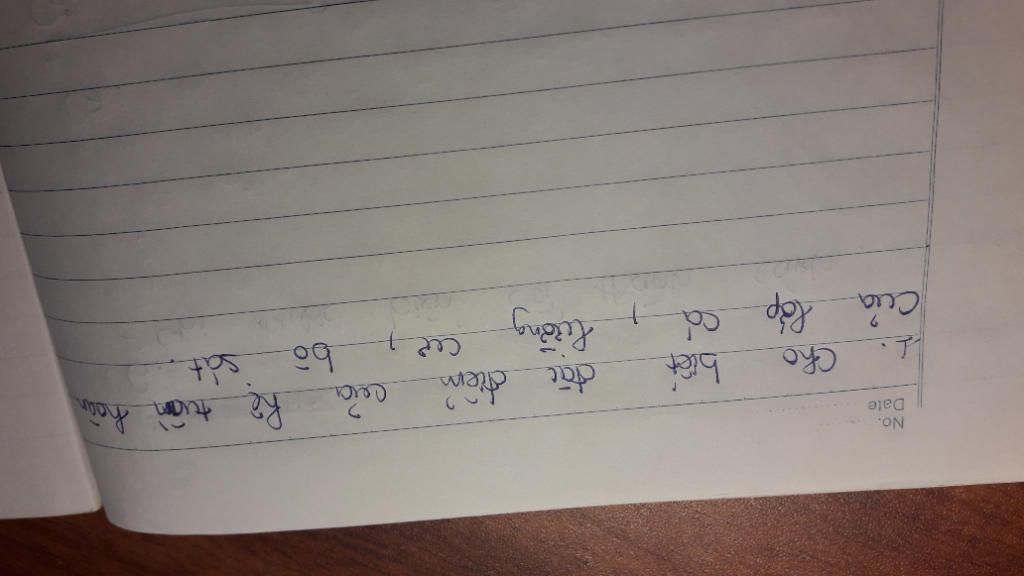 No.
Date
1. Cho biết đặc điểm của hệ tuần hoàn
Của lớp cá, lưỡng cư, bò sát.